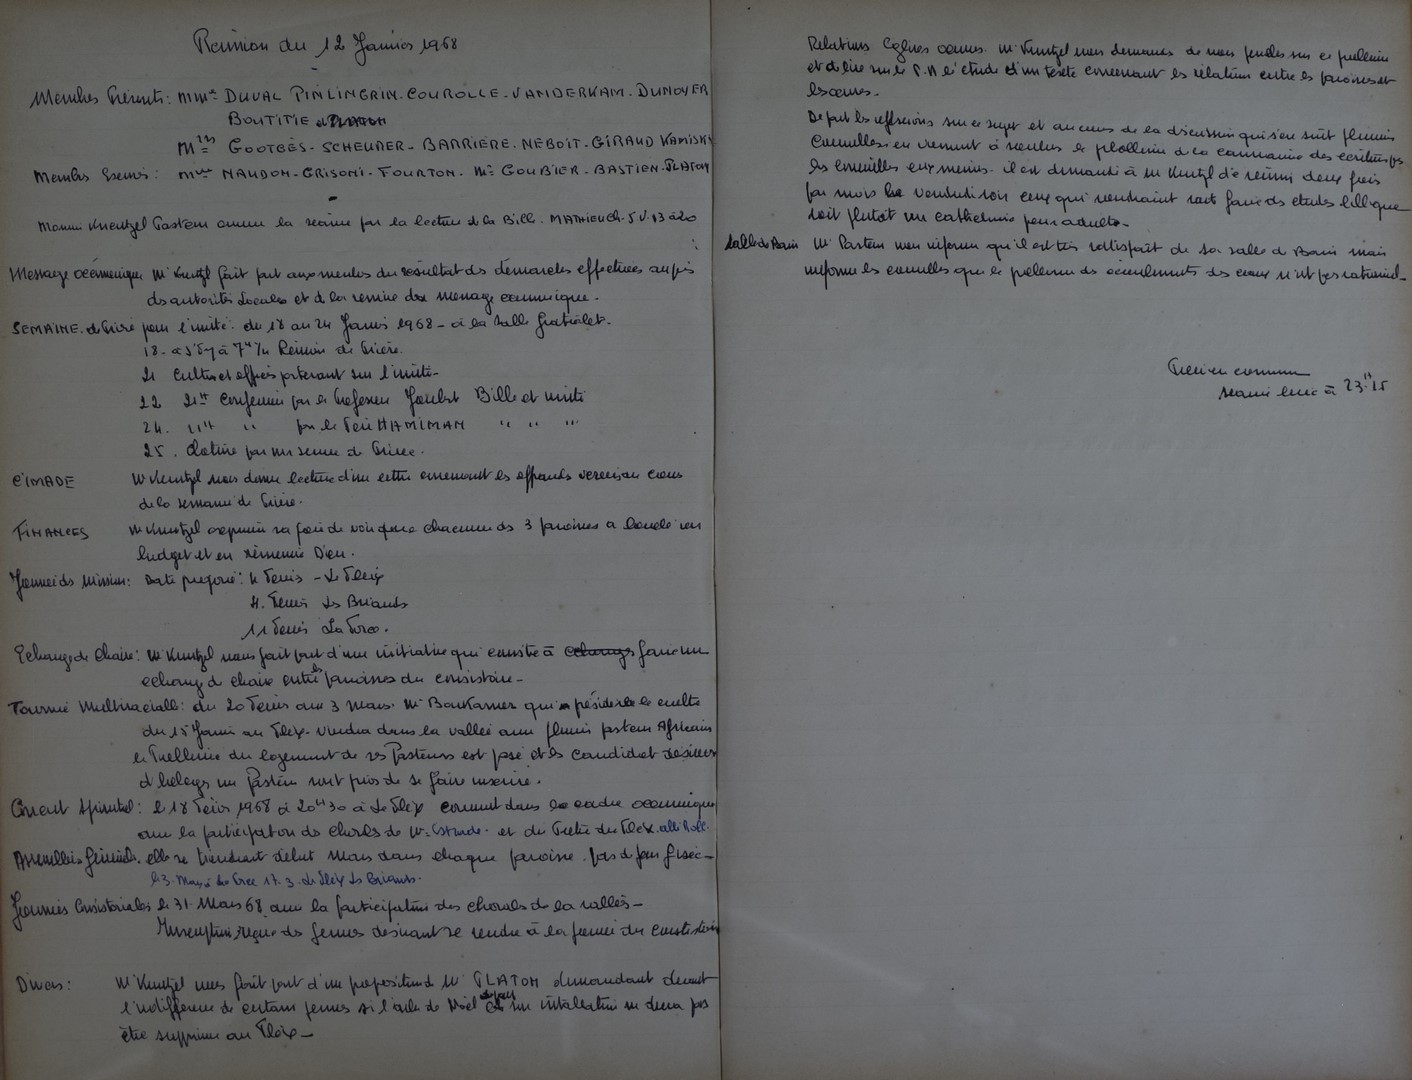 Réunion du 12 Janvier 1968
Membres Présents: Mme DUVAL PINLINGRIN. COUROLLE - VANDERKAM. DUNOYER
BOUTITIE
GOOTGÈS - SCHEUNER - BARRIÈRE. NÉBOIT. GIRAUD KAMISKY
Membres Excusés: Mme NAUDON. GRISONI. FOURTON. Mr GOURBIER. BASTIEN. PLATON
Monsieur Kneutzel Pasteur ouvre la séance par la lecture de la Bible. MATHIEU Ch. 5 V. 13 à 20
Message oecuménique Mr Kuntzel fait part aux membres du résultat des démarches effectuées auprès
des autorités locales et de la remise du message oecuménique.
SEMAINE de Prière pour l'unité: du 18 au 24 Janvier 1968 - à la Salle
18. à 7h Réunion de Prière.
21 Cultes et offices portant sur l'unité.
22 21H Conférence par le Professeur Joubert Bible et unité
24. 21H " par le Père HAMIMAN " " "
25. Clôture par une séance de Prière.
CIMADE Mr Kuntzel nous donne lecture d'une lettre concernant les offrandes versées au cours
de la semaine de Prière.
FINANCES Mr Kuntzel exprime sa joie de voir que chacune des 3 paroisses a bouclé son
budget et en remercie Dieu.
Journée des Missions: Date proposée: 4 Février - Le Fleix
4. Février Les Briands
11 Février La Force.
Echange de Chaire: Mr Kuntzel nous fait part d'une initiative qui consiste à echange faire un
échange de chaire entre les paroisses du consistoire -
Tournée Multiraciale: du 20 Février au 3 Mars. Mr qui présidera le culte
du 15 Janvier au Fleix. viendra dans la vallée avec plusieurs pasteurs Africains
le Problème du logement de ces Pasteurs est posé et les candidats désireux
d'héberger un Pasteur sont priés de se faire inscrire.
Concert Spirituel: le 18 Février 1968 à 20H30 à Le Fleix concert dans le cadre oecuménique
avec la participation des chorales de Mr et du Prêtre du Fleix.
Assemblées Générales. elles se tiendront début Mars dans chaque paroisse. pas de jour fixé -
le 3. Mars à La Force 17. 3. Le Fleix Les Briands.
Journées Consistoriales le 31. Mars 68 avec la participation des chorales de la vallée -
Inscription reçue des jeunes désirant se rendre à la journée du Consistoire
Divers: Mr Kuntzel nous fait part d'une proposition de Mr PLATON demandant devant
l'indifférence de certains jeunes si l'arbre de Noël ne devra pas
être supprimé au Fleix -
Relations Eglises oeuvres. Mr Kuntzel nous demande de nous pencher sur ce problème
et de l'étude d'un texte concernant les relations entre les paroisses et
les oeuvres.
De par les réflexions sur ce sujet et au cours de la discussion qui s'en suit plusieurs
Conseillers en viennent à soulever le problème de la connaissance des écritures par
les conseillers eux-mêmes. il est demandé à Mr Kuntzel de réunir deux fois
par mois le vendredi soir ceux qui voudraient soit faire des études bibliques
soit plutôt un cathéchisme pour adultes -
Salle de Bain Mr Pasteur nous informe qu'il est très satisfait de sa salle de Bain mais
informe les conseillers que le problème des écoulements des eaux n'est pas rationnel -
Prière en commun
séance levée à 23H15